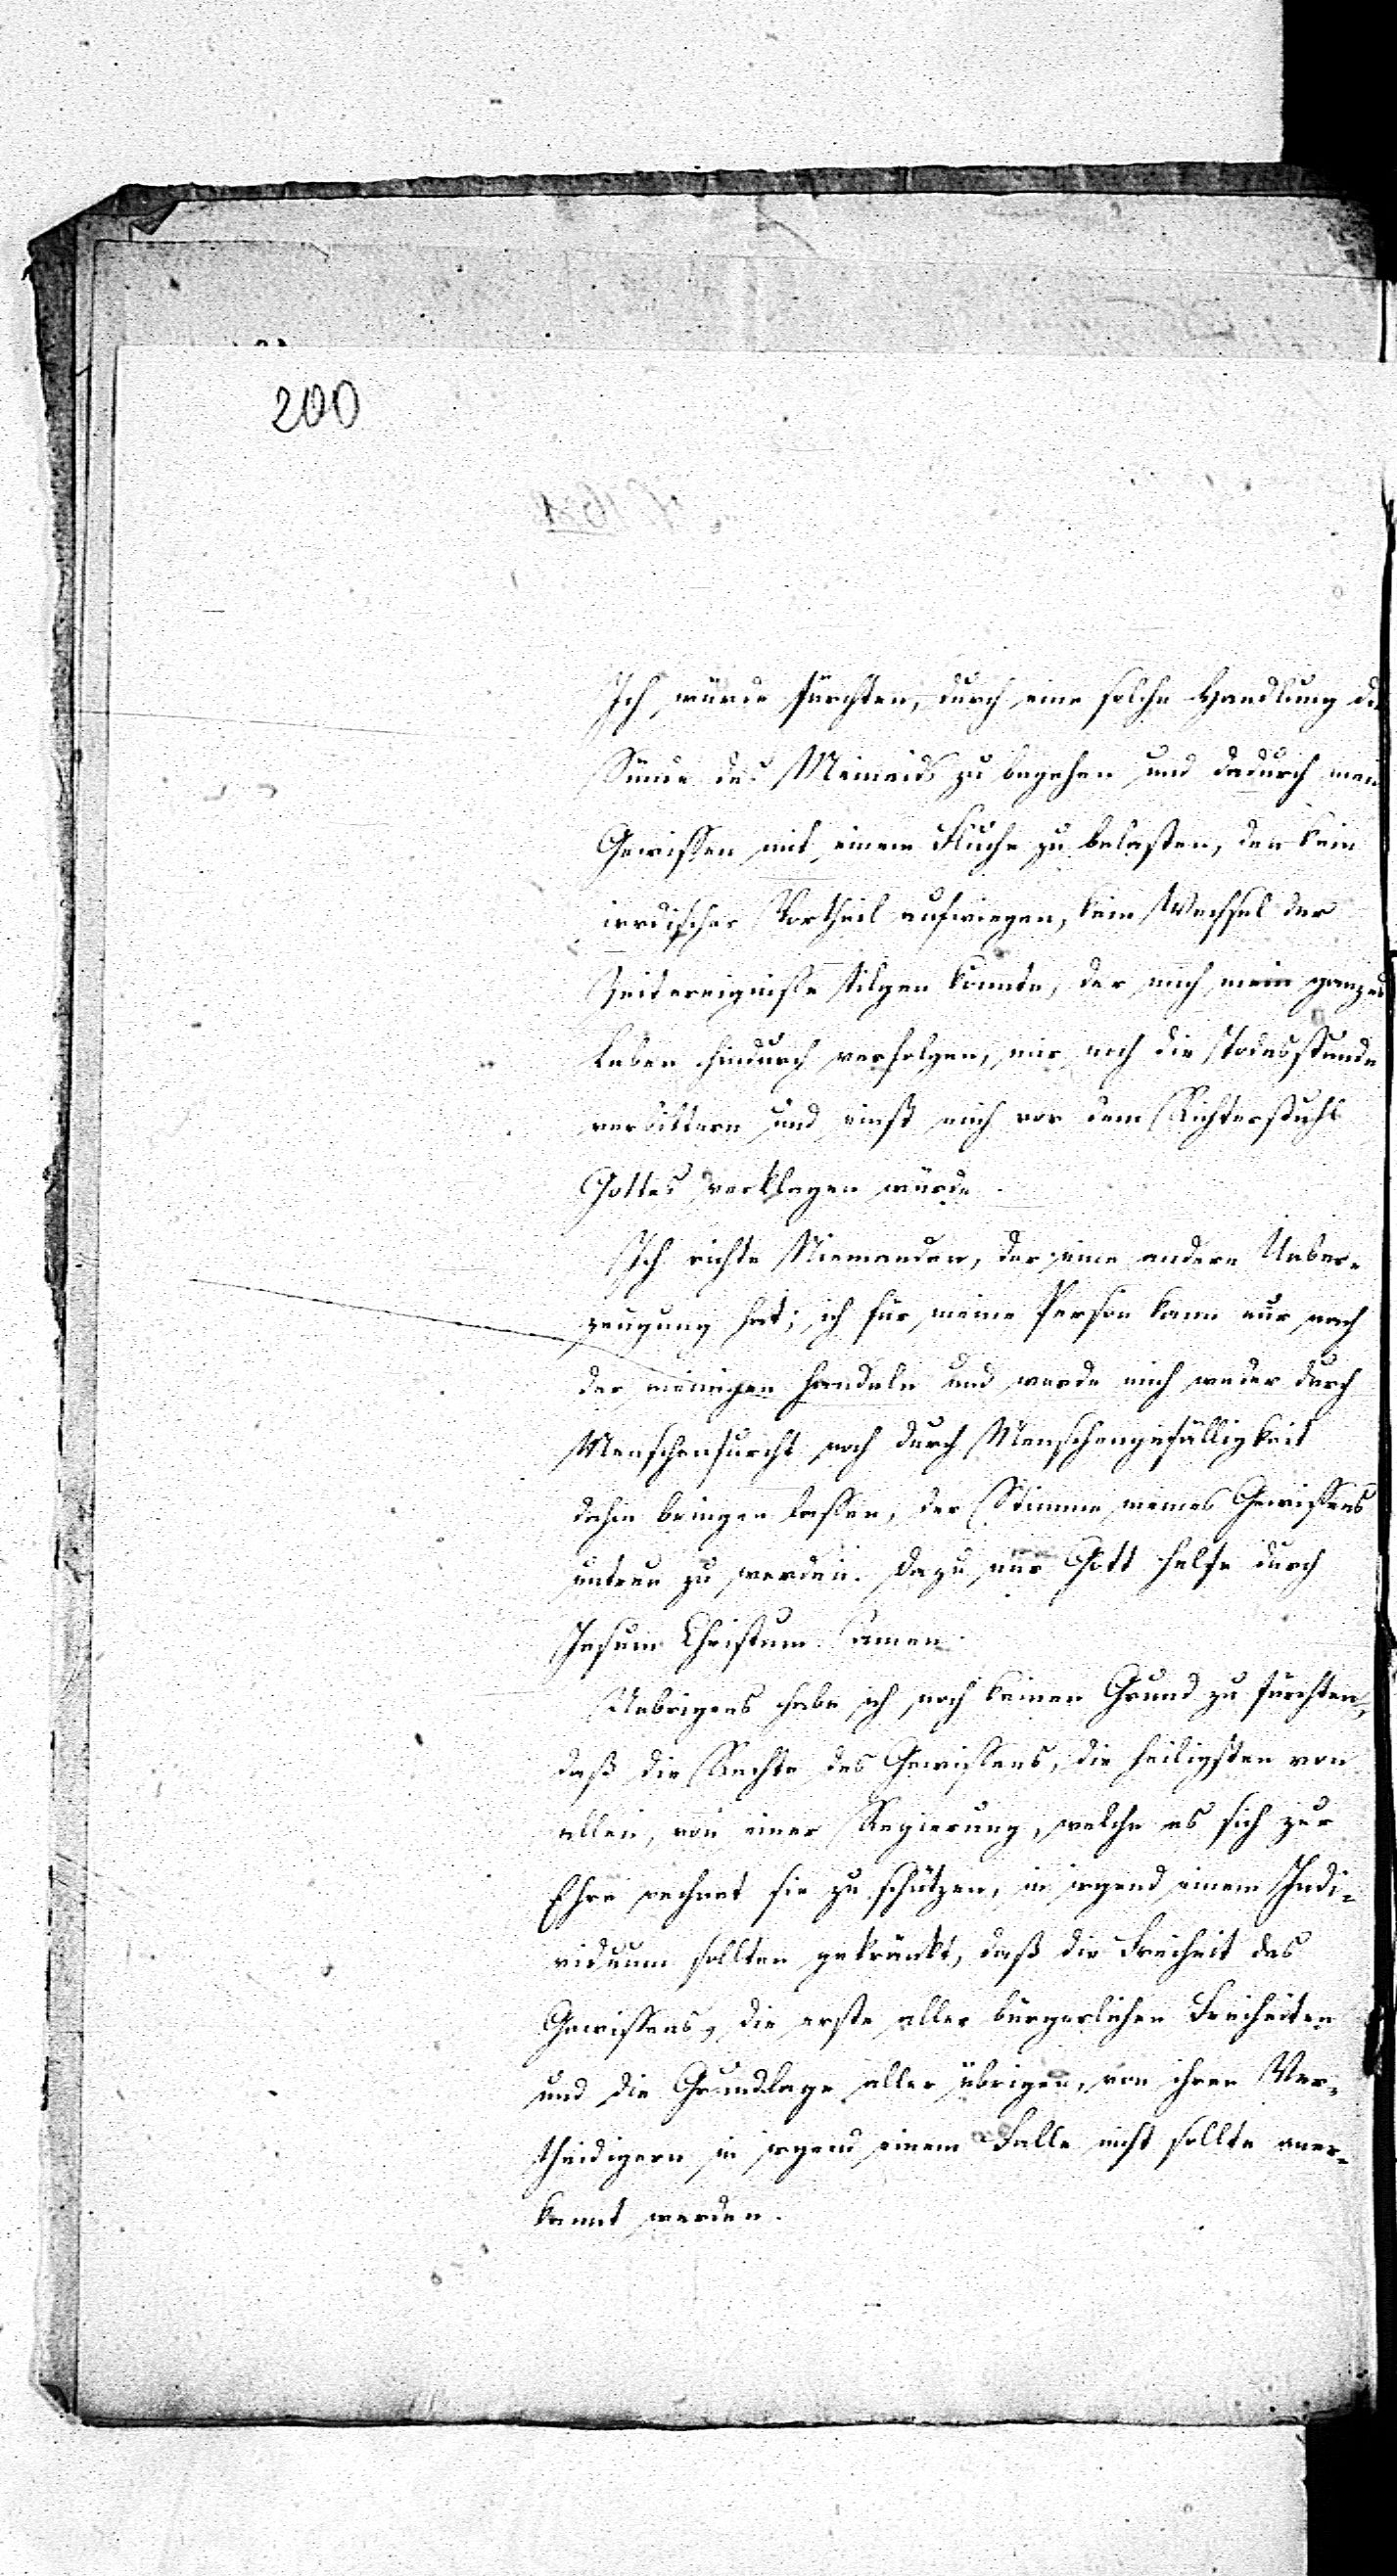 200
Ich würde fürchten, durch eine solche Handlung die
Sünde des Meineids zu begehen und dadurch mein
Gewissen mit einem Fluche zu belasten, den kein
irrdischer Vortheil aufwiegen, kein Wechsel der
Zeitereignisse tilgen könnte, der mich mein ganzes
Leben hindurch verfolgen, mir noch die Todesstunde
verbittern und einst mich vor dem Richterstuhl
Gottes verklagen würde.
Ich richte Niemanden, der eine andere Ueber-
zeugung hat; ich für meine Person kann nur nach
der meinigen handeln und werde mich weder durch
Menschenfurcht noch durch Menschengefälligkeit
dahin bringen lassen, der Stimme meines Gewissens
untreu zu werden. Dazu mir Gott helfe durch
Jesum Christum. Amen.
Uebrigens habe ich noch keinen Grund zu fürchten,
daß die Rechte des Gewissens, die heiligsten von
allen, von einer Regierung, welche es sich zur
Ehre rechnet sie zu schützen, in irgend einem Indi-
viduum sollten gekränkt, daß die Freiheit des
Gewissens, die erste aller bürgerlichen Freiheiten
und die Grundlage aller übrigen, von ihren Ver-
theidigern in irgend einem Falle nicht sollte aner-
kannt werden.